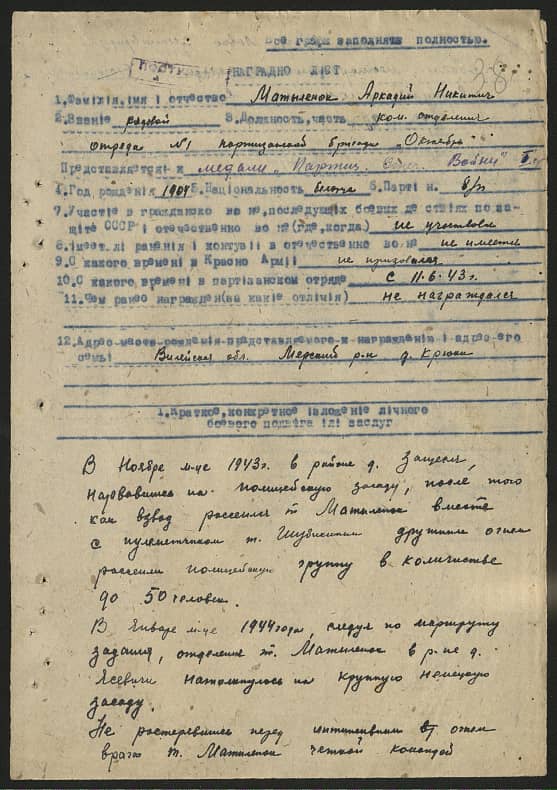 Все графы заполнять полностью.
НАГРАДНО ЛИСТ
1. Фамілія, імя і отчество Матыленок Аркадий Никитич
2. Звание рядовой 3. Должность, часть ком. отделения
отряда №1 партизанской бригады "Октябрь"
Представляется к медали "Партиз. Отеч. Войны" II ст
4. Год рождения 1909 5. Національность 6. Парті н. б/п
7. Участіе в гражданско во не, последующих боевых де ствіях по за-
щіте СССР і отечественно во не (где, когда) не участвовал
8. імеет лі раненія і контузіі в отечественно во не не имеет
9. С какого времені в Красно Арміі не призывался
10. С какого времені в партізанском отряде с 11.6.43 г.
11. Чем ранее награжден (за какіе отлічія) не награждался
12. Адрес места рожденія представляемого к награжденію і адрес его
семьі Вилейская обл. Мерский р-н д. Крюки
1. Краткое, конкретное ізложеніе лічного
боевого подвіга ілі заслуг
В Ноябре м-це 1943 г. в районе д.
нарвовшись на полицейскую засаду, после того
как взвод рассеялся т. Матыленок вместе
с пулеметчиком т. дружным огнем
рассеяли полицейскую группу в количестве
до 50 человек.
В Январе м-це 1944 года, следуя по маршруту
задания, отделение т. Матыленок в р-не д.
Ясевичи натолкнулось на крупную немецкую
засаду.
Не растерявшись перед интенсивным огнем
врага т. Матыленок четкой командой